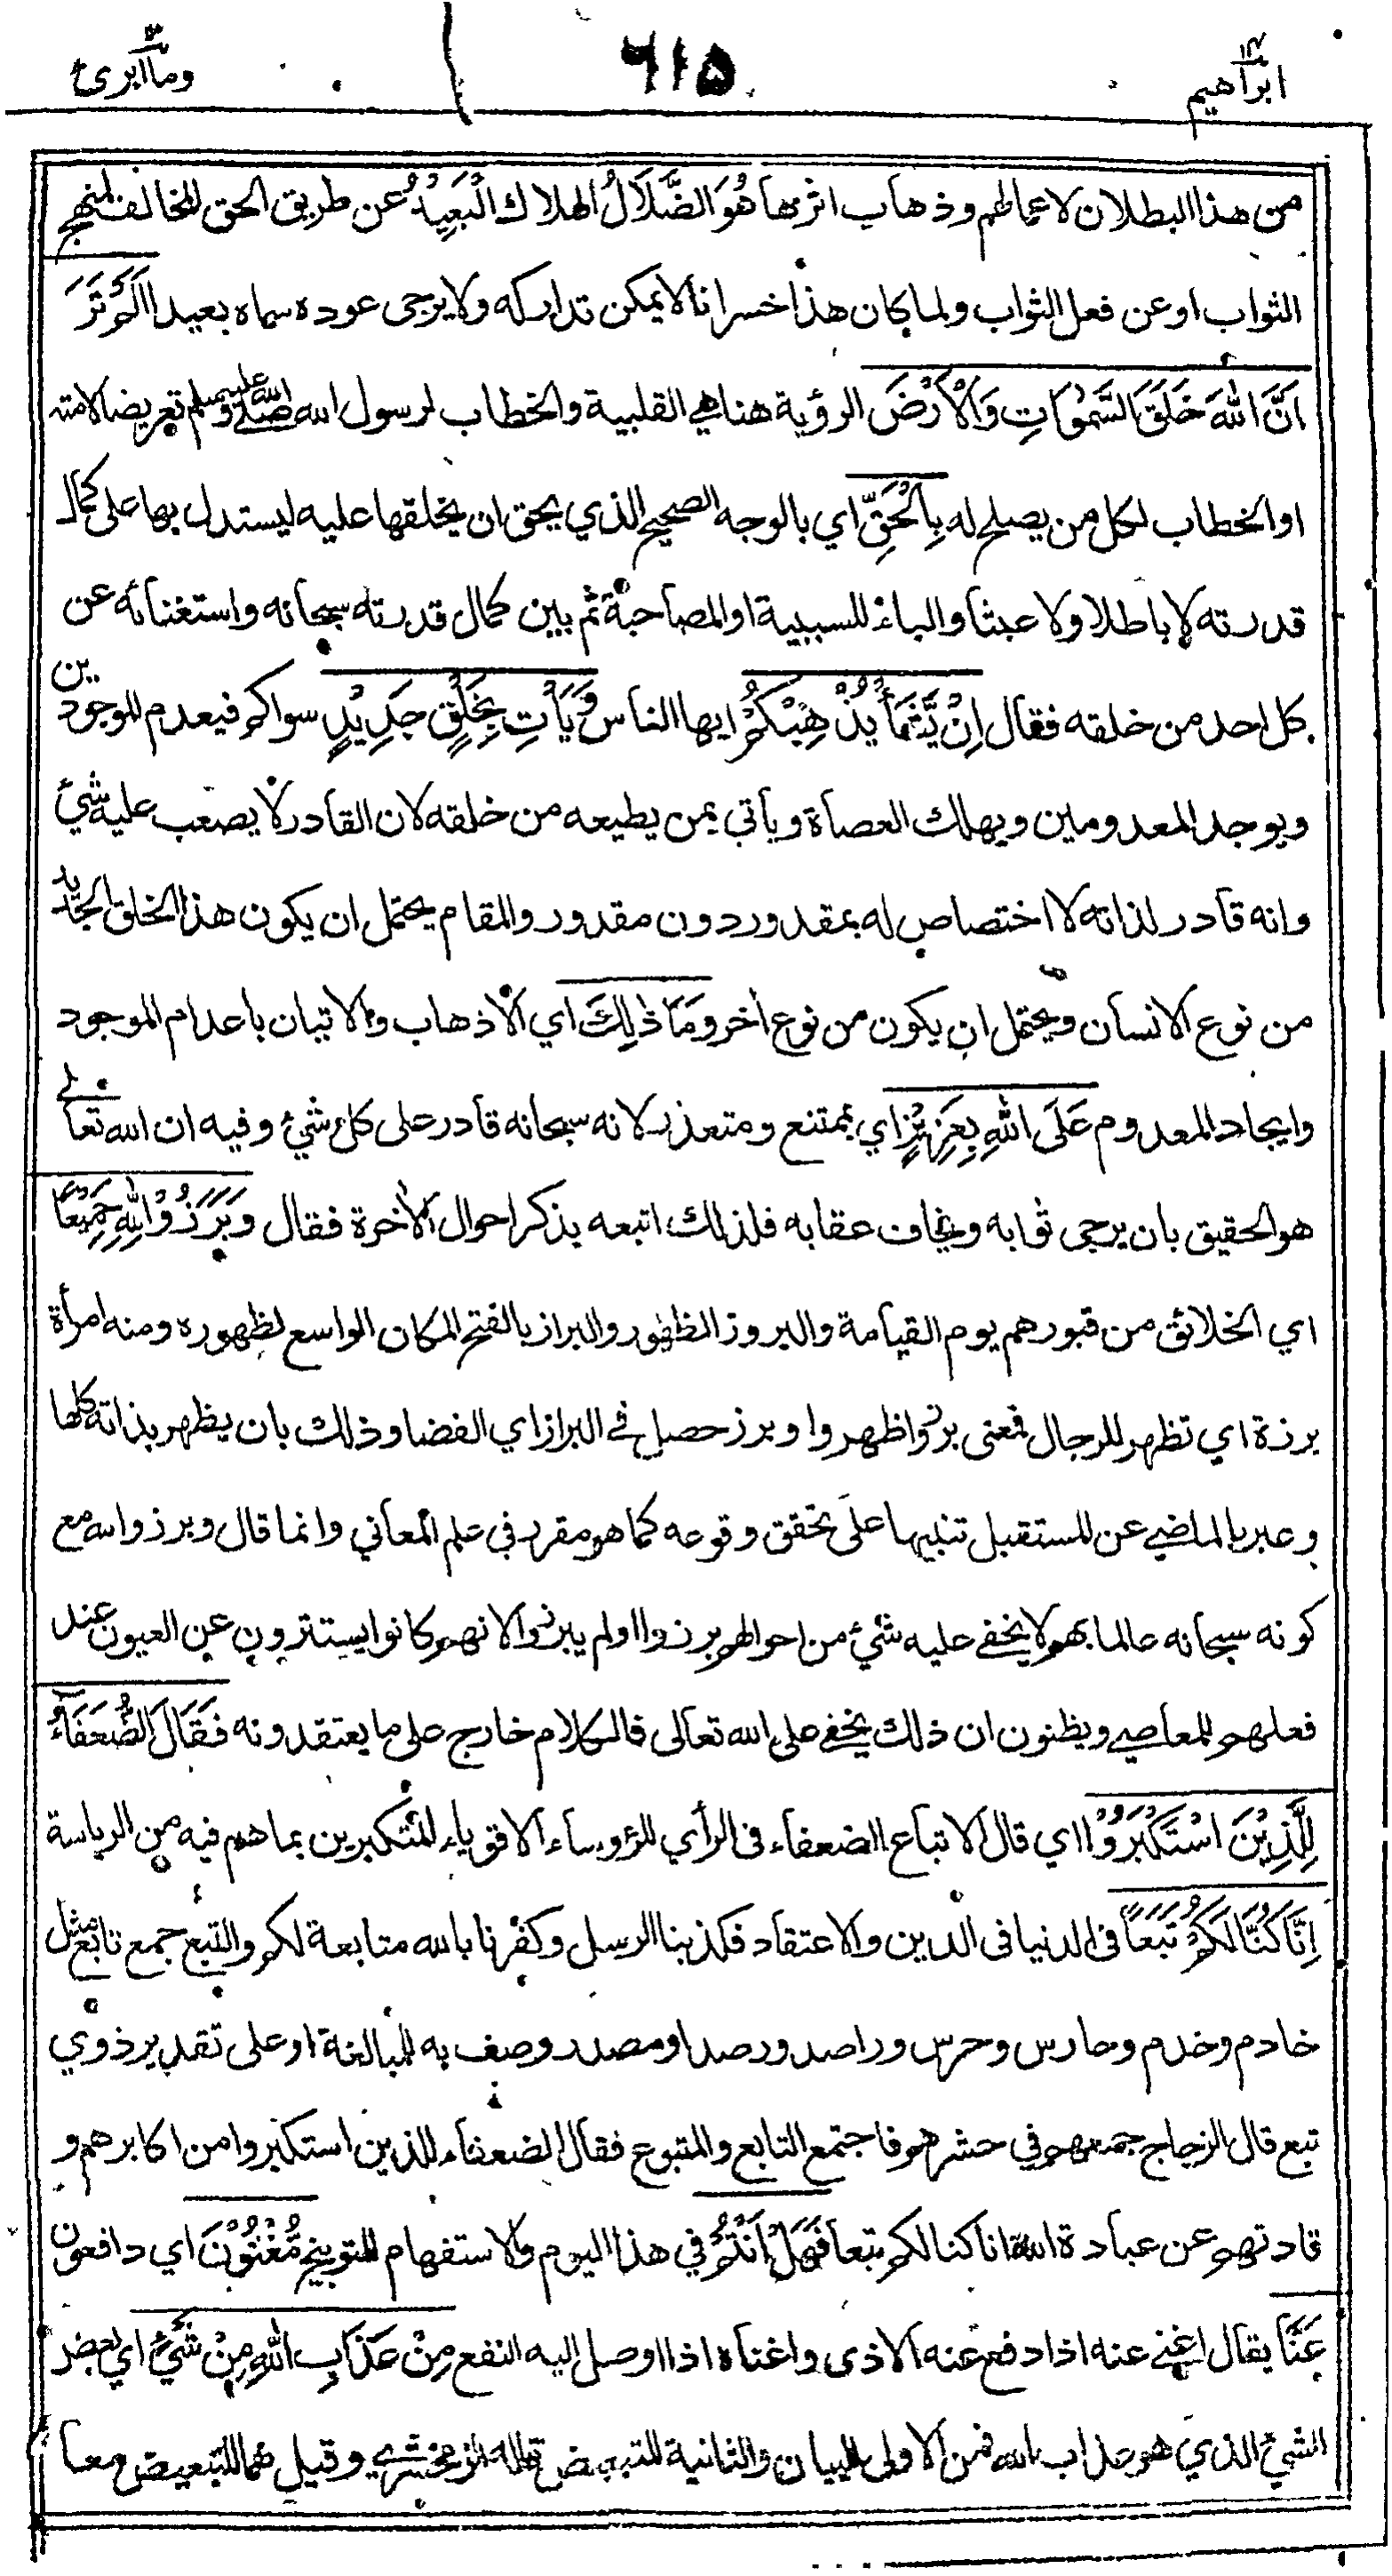 ابراهيم ١٤
٦١٥
وما ابرئ ١٣
من هذا البطلان لاعمالهم وذهاب اثرها هُوَ الضَّلَالُ الهلاك الْبَعِيْدُ عن طريق الحق المخالف لمنهج
الثواب او عن فعل الثواب ولما كان هذا خسرانا لا يمكن تداركه ولا يرجى عوده سماه بعيدا اَلَمْ تَرَ
اَنَّ اللّٰهَ خَلَقَ السَّمٰوَاتِ وَالْاَرْضَ الرؤية هنا هي القلبية والخطاب لرسول الله صلى الله عليه وسلم تعريضا لامته
او الخطاب لكل من يصلح له بِالْحَقِّ اي بالوجه الصحيح الذي يحق ان يخلقها عليه ليستدل بها على كمال
قدرته لا باطلا ولا عبثا والباء للسببية او المصاحبة ثم بين كمال قدرته سبحانه واستغنائه عن
كل احد من خلقه فقال اِنْ يَّشَأْ يُذْهِبْكُمْ ايها الناس وَيَأْتِ بِخَلْقٍ جَدِيْدٍ سواكم فيعدم الموجودين
ويوجد المعدومين ويهلك العصاة ويأتي بمن يطيعه من خلقه لان القادر لا يصعب عليه شيئ
وانه قادر لذاته لا اختصاص له بمقدور دون مقدور والمقام يحتمل ان يكون هذا الخلق الجديد
من نوع الانسان ويحتمل ان يكون من نوع أخر وَمَا ذٰلِكَ اي الاذهاب والاتيان باعدام الموجود
وايجاد المعدوم عَلَى اللّٰهِ بِعَزِيْزٍ اي بممتنع ومتعذر لانه سبحانه قادر على كل شيئ وفيه ان الله تعالى
هو الحقيق بان يرجى ثوابه ويخاف عقابه فلذلك اتبعه بذكر احوال الأخرة فقال وَبَرَزُوْا لِلّٰهِ جَمِيْعًا
اي الخلائق من قبورهم يوم القيامة والبروز الظهور والبراز بالفتح المكان الواسع لظهوره ومنه امرأة
برزة اي تظهر للرجال فمعنى برزوا ظهروا وبرز حصل في البراز اي الفضا وذلك بان يظهر بذاته كلها
وعبر بالماضي عن المستقبل تنبيها على تحقق وقوعه كما هو مقرر في علم المعاني وانما قال وبرزوا لله مع
كونه سبحانه عالما بهم لا يخفى عليه شيئ من احوالهم برزوا او لم يبرزوا لانهم كانوا يستترون عن العيون عند
فعلهم للمعاصي ويظنون ان ذلك يخفى على الله تعالى فالكلام خارج على ما يعتقدونه فَقَالَ الضُّعَفَاءُ
لِلَّذِيْنَ اسْتَكْبَرُوْا اي قال الاتباع الضعفاء في الرأي للرؤساء الاقوياء المتكبرين بما هم فيه من الرياسة
اِنَّا كُنَّا لَكُمْ تَبَعًا في الدنيا في الدين والاعتقاد فكذبنا الرسل وكفرنا بالله متابعة لكم والتبع جمع تابع مثل
خادم وخدم وحارس وحرس وراصد ورصد او مصدر وصف به للمبالغة او على تقدير ذوي
تبع قال الزجاج جمعهم في حشرهم فاجتمع التابع والمتبوع فقال الضعفاء للذين استكبروا من اكابرهم و
قادتهم عن عبادة الله انا كنا لكم تبعا فَهَلْ اَنْتُمْ في هذا اليوم والاستفهام للتوبيخ مُغْنُوْنَ اي دافعون
عَنَّا يقال اغنى عنه اذا دفع عنه الاذى واغناه اذا اوصل اليه النفع مِنْ عَذَابِ اللّٰهِ مِنْ شَيْئٍ اي بعض
الشيئ الذي هو عذاب الله فمن الاولى للبيان والثانية للتبعيض قاله الزمخشري وقيل هما للتبعيض معا